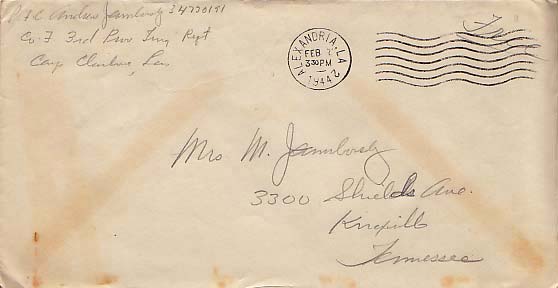 Andrew Jamborsky 34770191
Co. F 3rd Prov Tng Regt
Camp Claiborne, La
ALEXANDRIA, LA.
FEB 2
3 30 PM
1944
2
Free
Mrs M. Jamborsky
3300 Shields Ave.
Knoxville
Tennessee